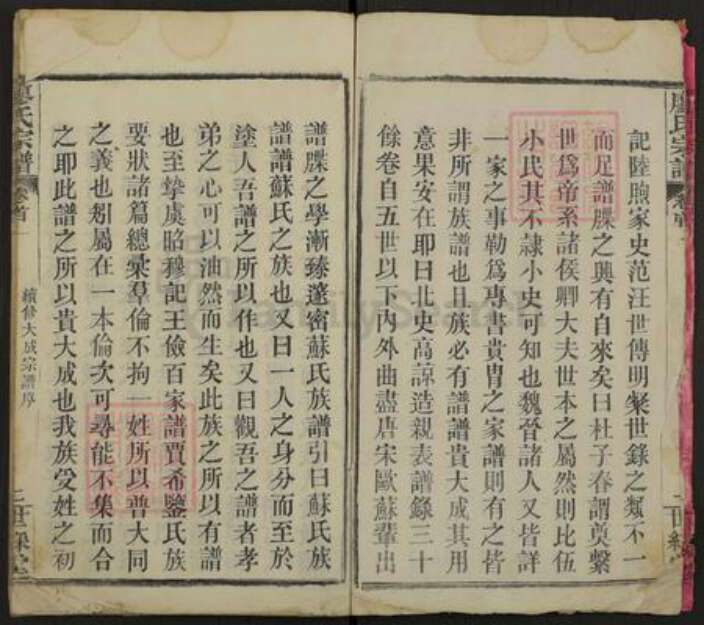 廖氏宗譜
卷首
記陸煦家史范汪世傳明粲世錄之類不一
而足譜牒之興有自來矣曰杜子春謂奠繫
世爲帝系諸侯卿大夫世本之屬然則比伍
小民其不隷小史可知也魏晉諸人又皆詳
一家之事勒爲專書貴胄之家譜則有之皆
非所謂族譜也且族必有譜譜貴大成其用
意果安在耶曰北史高諒造親表譜錄三十
餘卷自五世以下內外曲盡唐宋歐蘇輩出
譜牒之學漸臻邃密蘇氏族譜引曰蘇氏族
譜譜蘇氏之族也又曰一人之身分而至於
塗人吾譜之所以作也又曰觀吾之譜者孝
弟之心可以油然而生矣此族之所以有譜
也至摯虞昭穆記王儉百家譜賈希鑒氏族
要狀諸篇總彙羣倫不拘一姓所以普大同
之義也剏屬在一本倫次可尋能不集而合
之耶此譜之所以貴大成也我族受姓之初
廖氏宗譜
卷首
續修大成宗譜序
二
世綵堂